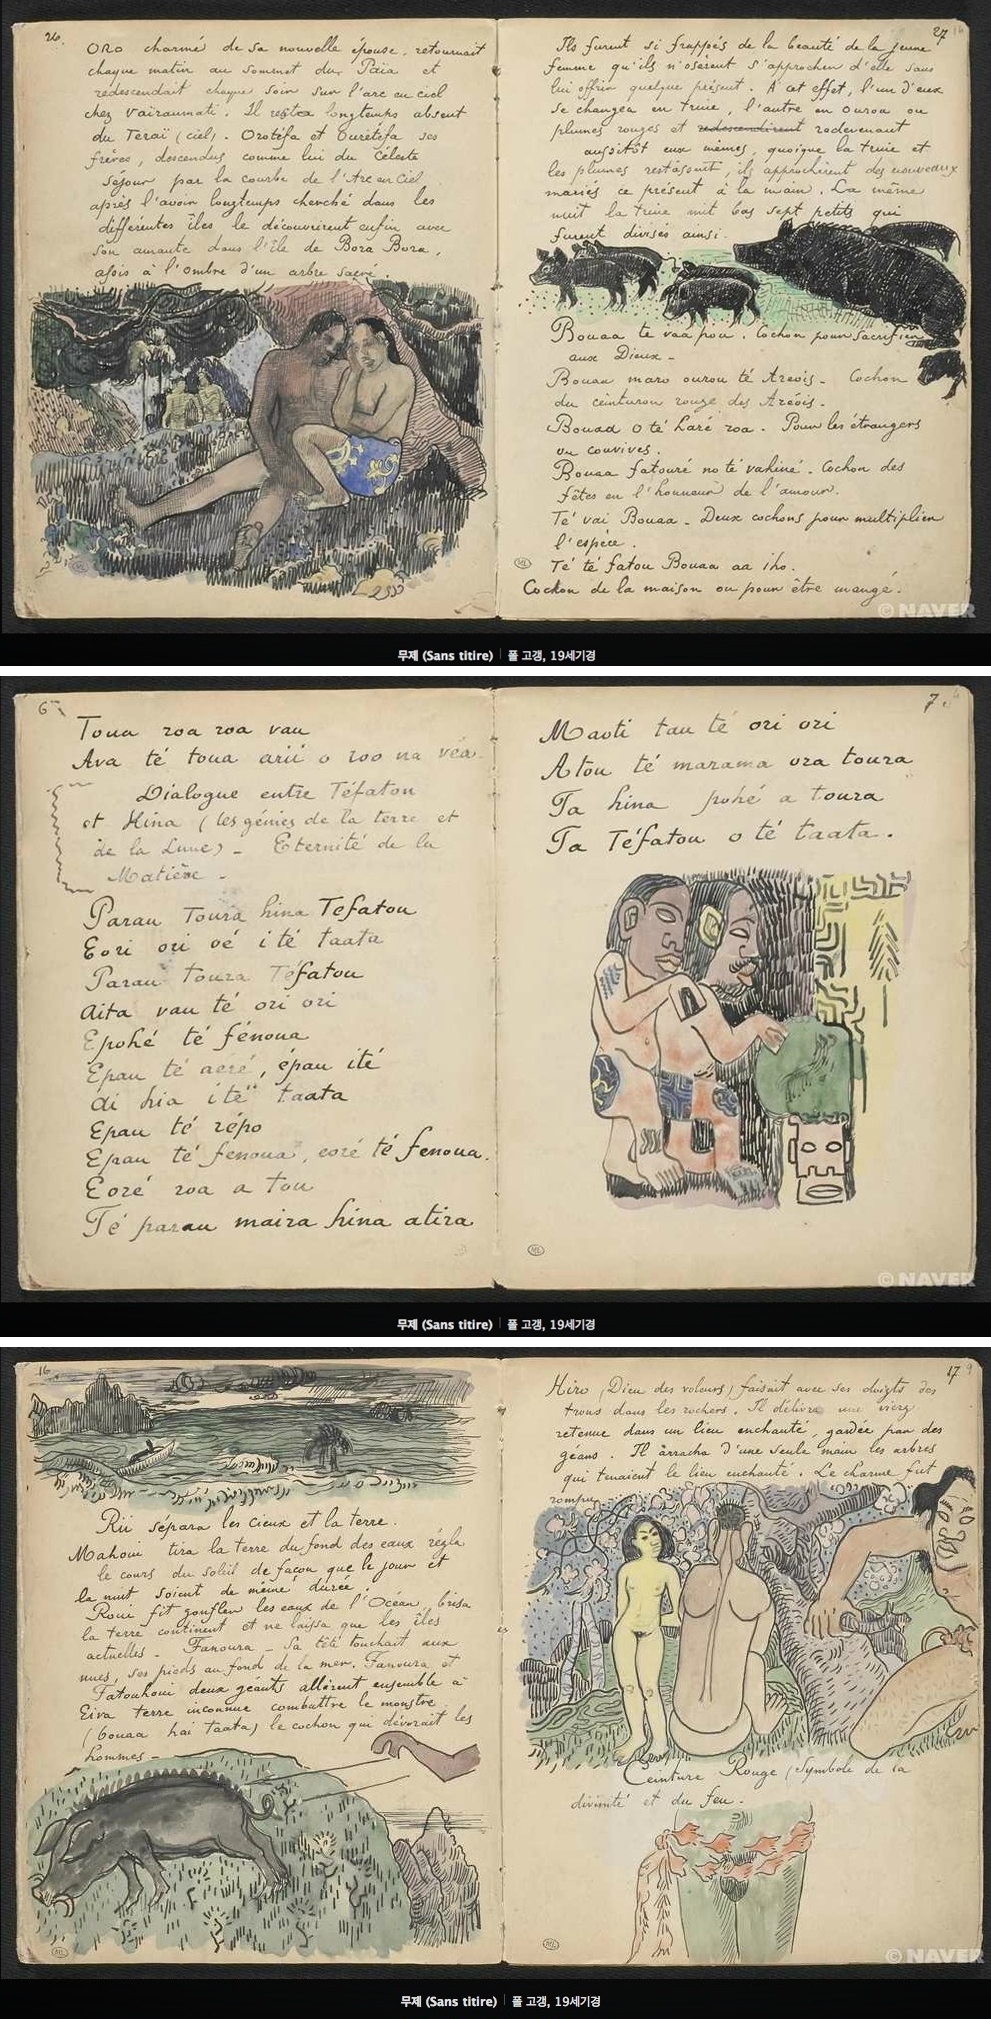 26.
ORO charmé de sa nouvelle épouse, retournait
chaque matin au sommet du Païa et
redescendait chaque soir sur l'arc en ciel
chez Vaïraumati. Il resta longtemps absent
du Teraï (ciel). Orotéfa et Ourétéfa ses
frères, descendus comme lui du Céleste
séjour par la courbe de l'Arc en Ciel
après l'avoir longtemps cherché dans les
différentes îles le découvrirent enfin avec
son amante dans l'île de Bora Bora,
assis à l'ombre d'un arbre sacré.
27
Ils furent si frappés de la beauté de la jeune
femme qu'ils n'osèrent s'approcher d'elle sans
lui offrir quelque présent. A cet effet, l'un d'eux
se changea en truie, l'autre en ouroa ou
plumes rouges et redescendirent redevenant
aussitôt eux mêmes, quoique la truie et
les plumes restassent, ils approchèrent des nouveaux
mariés ce présent à la main. La même
nuit la truie mit bas sept petits qui
furent divisés ainsi.
Bouaa te vaa pou. Cochon pour sacrifier
aux Dieux -
Bouaa maro ourou té Areois - Cochon
du ceinturon rouge des Aréois.
Bouaa O té haré roa. Pour les étrangers
ou convives.
Bouaa fatouré no té vahiné. Cochon des
fêtes en l'honneur de l'amour.
Té vai Bouaa - Deux cochons pour multiplier
l'espèce.
Té té fatou Bouaa aa iho.
Cochon de la maison ou pour être mangé.
© NAVER
무제 (Sans titire) | 폴 고갱, 19세기경
6
Toua roa roa vau
Ava té toua arii o roo na véa.
Dialogue entre Téfatou
et Hina (les génies de la terre et
de la Lune) - Eternité de la
Matière -
Parau Toura hina Tefatou
Eori ori oé i té taata
Parau toura Téfatou
Aita vau té ori ori
Epohé té fénoua
Epau té aéré, épau ité
ai hia ité taata
Epau té répo
Epau té fenoua, eoré té fenoua.
Eoré roa a tou
Té parau maira hina atira
7.
Maoti tau té ori ori
Atou té marama ora toura
Ta hina pohé a toura
Ta Téfatou o té taata.
© NAVER
무제 (Sans titire) | 폴 고갱, 19세기경
16
Rii sépara les cieux et la terre.
Mahoui tira la terre du fond des eaux régla
le cours du soleil de façon que le jour et
la nuit soient de même durée.
Roui fit gonfler les eaux de l'Océan, brisa
la terre continent et ne laissa que les îles
actuelles - Fanoura - Sa tête touchait aux
nues, ses pieds au fond de la mer. Fanoura et
Fatouhoui deux géants allèrent ensemble à
Eiva terre inconnue combattre le monstre
(bouaa hai taata) le cochon qui dévorait les
hommes -
17
Hiro (Dieu des voleurs) faisait avec ses doigts des
trous dans les rochers. Il délivra une vierg
retenue dans un lieu enchanté, gardée par des
géans. Il arracha d'une seule main les arbres
qui tenaient le lieu enchanté. Le charme fut
rompu
Ceinture Rouge (Symbole de la
divinité et du feu.
© NAVER
무제 (Sans titire) | 폴 고갱, 19세기경